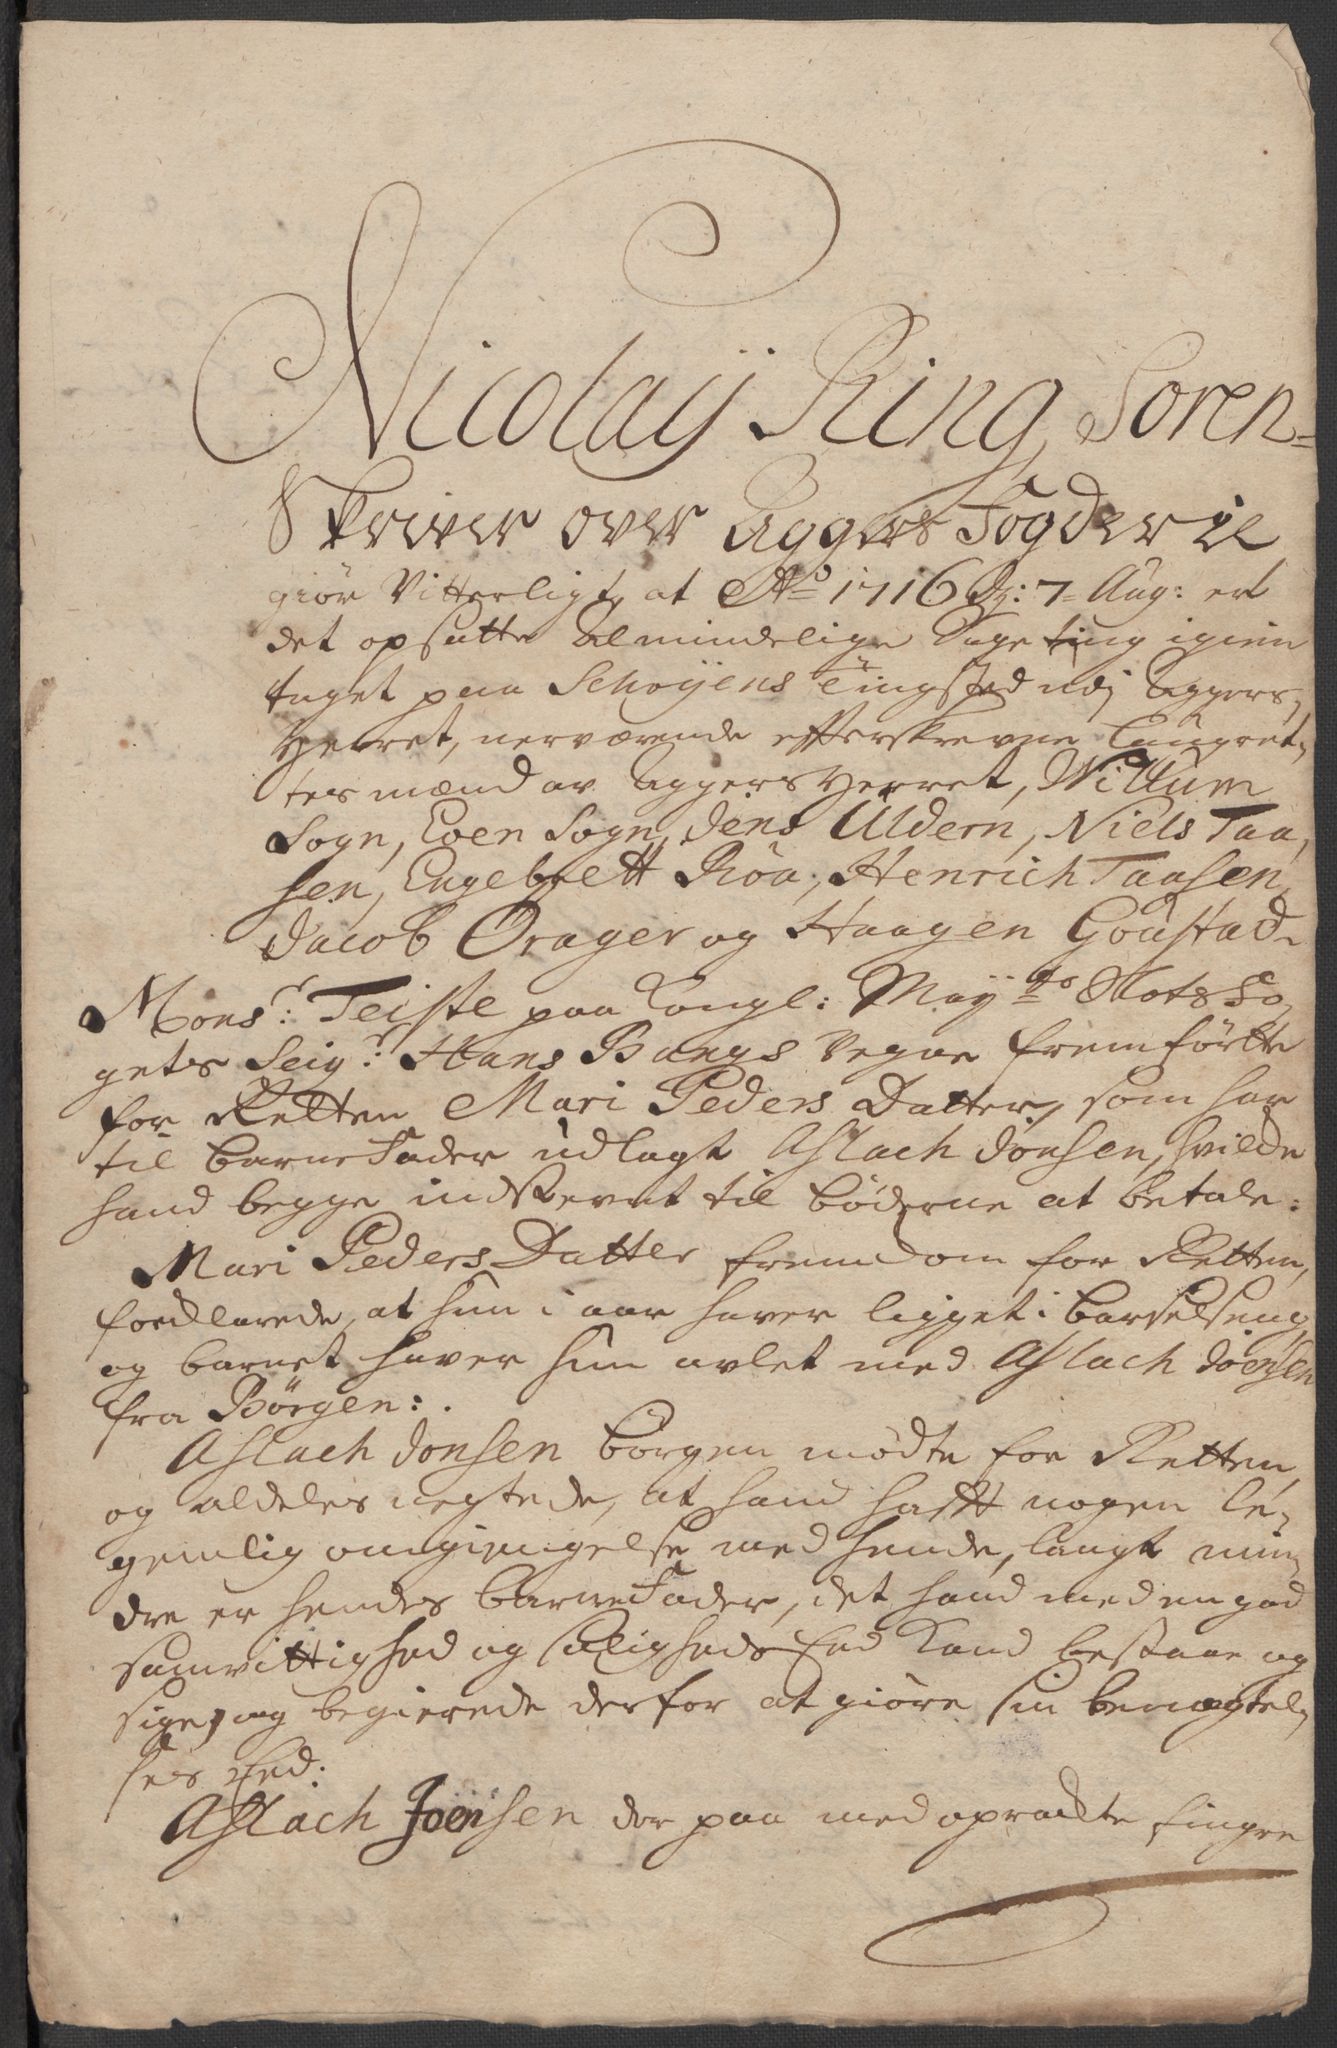 Nicolaij Ring, Soren=
Skriver over Aggers Fogderie
giør Vitterligt, at Ao 1716 D: 7 Aug: er
det opsatte Almindelige Sage ting igien
taget paa Schøyens Tingsted udj Aggers,
Herret, nerværende effterskrevne Laugret,
tes mænd av Aggers Herret, Willum
Sogn, Even Sogn, Jens Ùldern, Niels Taa,
sen, Engebrett Röa, Henrich Taasen,
Jacob Orager og Haagen Goustad.
Monsr: Teiste paa Kongl: Maytts Slots Fo,
gets Seigr: Hans Bangs Vegne fremförtte
for Retten Mari Peders Datter, som har
til barnefader udlagt Aslach Jonsen, hvilcke
hand begge indstevnt til bøderne at betale:
Mari Peders Datter fremkom for Retten,
forcklarede, at hun i aar haver ligget i barselseng,
og barnet haver hun avlet med Aslach Joensen
fra Börgen:.
Aslach Jonsen Börgen mødte for Retten,
og aldeles negtede, at hand hafft nogen le,
gemlig omgiengelse med hende, langt min,
dre er hendes barnefader, det hand med en god
samvittighed og saligheds Eed kand bestaae og
sige, og begierede derfor at giøre sin benegtel,
ses Eed:
Aslach Joensen der paa med opracte fingre